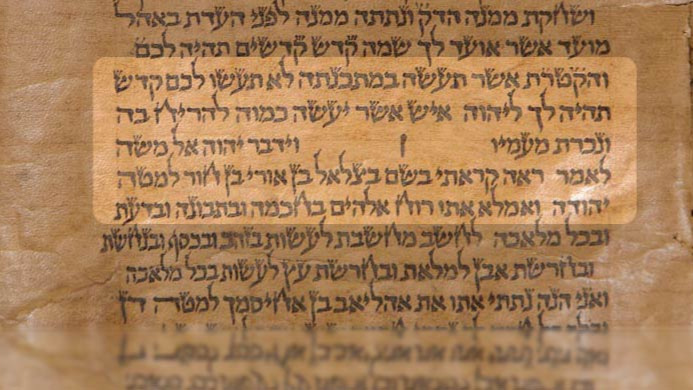 ושחקת ממנה הדק ונתתה ממנה לפני העדת באהל
מועד אשר אועד לך שמה קדש קדשים תהיה לכם
והקטרת אשר תעשה במתכנתה לא תעשו לכם קדש
תהיה לך ליהוה איש אשר יעשה כמוה להריח בה
ונכרת מעמיו וידבר יהוה אל משה
לאמר ראה קראתי בשם בצלאל בן אורי בן חור למטה
יהודה ואמלא אתו רוח אלהים בחכמה ובתבונה ובדעת
ובכל מלאכה לחשב מחשבת לעשות בזהב ובכסף ובנחשת
ובחרשת אבן למלאת ובחרשת עץ לעשות בכל מלאכה
ואני הנה נתתי אתו את אהליאב בן אחיסמך למטה דן